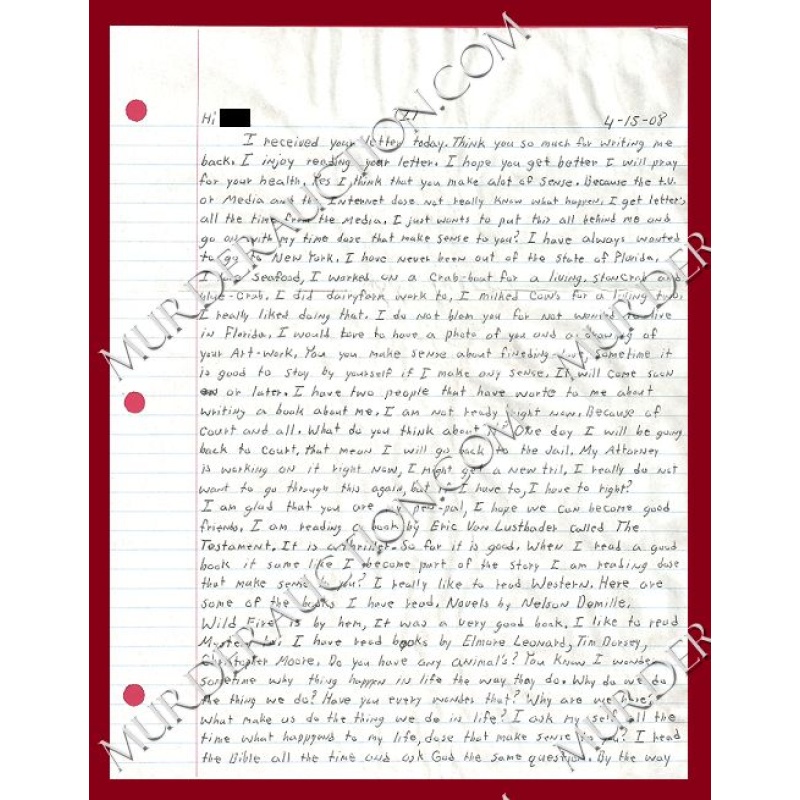 Hi (1) 4-15-08
I received your letter today. Think you so much for writing me
back. I injoy reading your letter. I hope you get better I will pray
for your health. Yes I think that you make alot of sense. Because the t.v.
or Media and the Internet dose not really know what happen. I get letter's
all the time from the Media. I just wants to put this all behind me and
go on with my time dose that make sense to you? I have always wonted
to go to New York. I have never been out of the state of Florida.
I Seafood, I worked on a Crab-boat for a living. StonCrab and
blue-Crab. I did dairyfarm work to, I milked Cows for a living too.
I really liked doing that. I do not blam you for not wonted to live
in Florida. I would love to have a photo of you and a drawing of
your Art-Work. You you make sense about fineding love, sometime it
is good to stay by yourself if I make any sense. It will come soon
or later. I have two people that have worte to me about
writing a book about me. I am not ready right now. Because of
court and all. What do you think about One day I will be going
back to court, that mean I will go back to the Jail. My Attorney
is working on it right now, I might get a new tril, I really do not
want to go through this again, but if I have to, I have to right?
I am glad that you are pen-pal, I hope we can become good
friends. I am reading a book by Eric Van Lustbader called The
Testament. It is a thriller. So for it is good. When I read a good
book it same like I become part of the story I am reading dose
that make sense to you? I really like to read Western. Here are
some of the books I have read. Novels by Nelson Demille.
Wild Fire is by hem, It was a very good book. I like to read
I have read books by Elmore Leonard, Tim Dorsey,
Christopter Moore. Do you have any animal's? You Know I wonder
sometime why thing happen in life the way they do. Why do we do
the thing we do? Have you every wonder that? Why are we here?
What make us do the thing we do in life? I ask my self all the
time what happyend to my life, dose that make sense to you? I read
the Bible all the time and ask God the same question. By the way
MURDERAUCTION.COM
MURDERAUCTION.COM
MURDER
MURDER